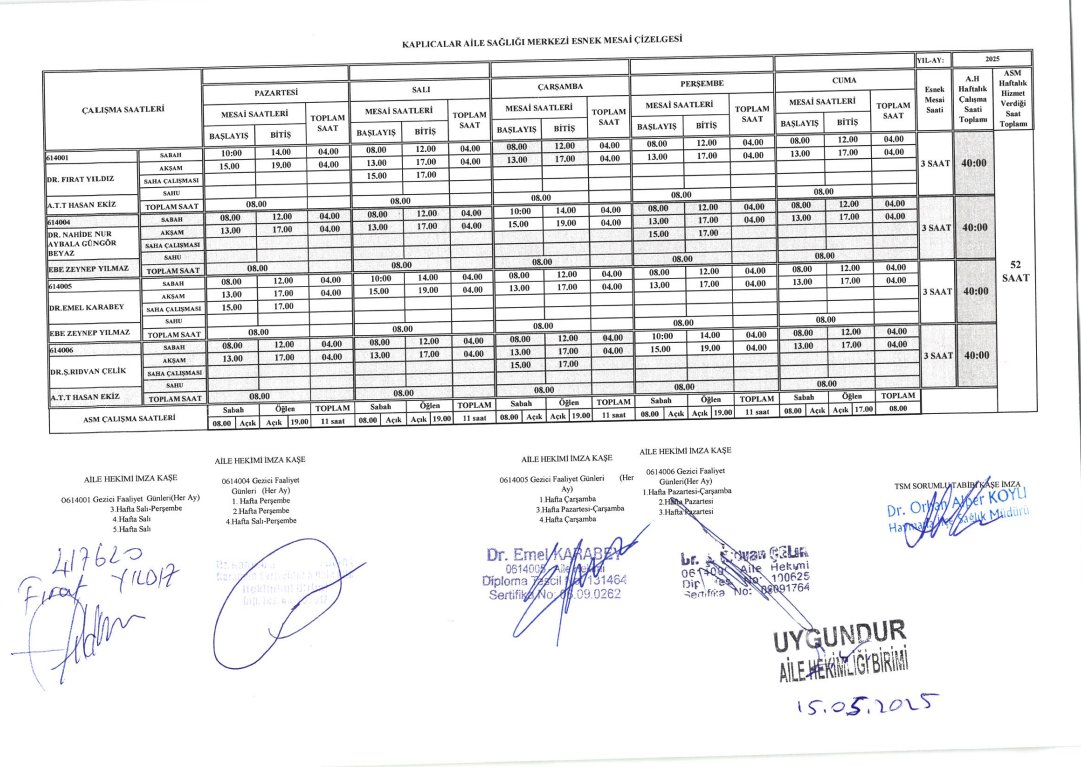 KAPLICALAR AİLE SAĞLIĞI MERKEZİ ESNEK MESAİ ÇİZELGESİ
YIL-AY: 2025
ÇALIŞMA SAATLERİ PAZARTESİ SALI ÇARŞAMBA PERŞEMBE CUMA Esnek Mesai Saati A.H Haftalık Çalışma Saati Toplamı ASM Haftalık Hizmet Verdiği Saat Toplamı
MESAİ SAATLERİ TOPLAM SAAT MESAİ SAATLERİ TOPLAM SAAT MESAİ SAATLERİ TOPLAM SAAT MESAİ SAATLERİ TOPLAM SAAT MESAİ SAATLERİ TOPLAM SAAT
BAŞLAYIŞ BİTİŞ BAŞLAYIŞ BİTİŞ BAŞLAYIŞ BİTİŞ BAŞLAYIŞ BİTİŞ BAŞLAYIŞ BİTİŞ
614001 SABAH 10:00 14.00 04.00 08.00 12.00 04.00 08.00 12.00 04.00 08.00 12.00 04.00 08.00 12.00 04.00
AKŞAM 15.00 19.00 04.00 13.00 17.00 04.00 13.00 17.00 04.00 13.00 17.00 04.00 13.00 17.00 04.00
DR. FIRAT YILDIZ SAHA ÇALIŞMASI 15.00 17.00 3 SAAT 40:00
SAHU
A.T.T HASAN EKİZ TOPLAM SAAT 08.00 08.00 08.00 08.00 08.00
614004 SABAH 08.00 12.00 04.00 08.00 12.00 04.00 10:00 14.00 04.00 08.00 12.00 04.00 08.00 12.00 04.00
DR. NAHİDE NUR AKŞAM 13.00 17.00 04.00 13.00 17.00 04.00 15.00 19.00 04.00 13.00 17.00 04.00 13.00 17.00 04.00
AYBALA GÜNGÖR SAHA ÇALIŞMASI 15.00 17.00 3 SAAT 40:00
BEYAZ SAHU
EBE ZEYNEP YILMAZ TOPLAM SAAT 08.00 08.00 08.00 08.00 08.00
52 SAAT
614005 SABAH 08.00 12.00 04.00 10:00 14.00 04.00 08.00 12.00 04.00 08.00 12.00 04.00 08.00 12.00 04.00
AKŞAM 13.00 17.00 04.00 15.00 19.00 04.00 13.00 17.00 04.00 13.00 17.00 04.00 13.00 17.00 04.00
DR.EMEL KARABEY SAHA ÇALIŞMASI 15.00 17.00 3 SAAT 40:00
SAHU
EBE ZEYNEP YILMAZ TOPLAM SAAT 08.00 08.00 08.00 08.00 08.00
614006 SABAH 08.00 12.00 04.00 08.00 12.00 04.00 08.00 12.00 04.00 10:00 14.00 04.00 08.00 12.00 04.00
AKŞAM 13.00 17.00 04.00 13.00 17.00 04.00 13.00 17.00 04.00 15.00 19.00 04.00 13.00 17.00 04.00
DR.Ş.RIDVAN ÇELİK SAHA ÇALIŞMASI 15.00 17.00 3 SAAT 40:00
SAHU
A.T.T HASAN EKİZ TOPLAM SAAT 08.00 08.00 08.00 08.00 08.00
ASM ÇALIŞMA SAATLERİ Sabah Öğlen TOPLAM Sabah Öğlen TOPLAM Sabah Öğlen TOPLAM Sabah Öğlen TOPLAM Sabah Öğlen TOPLAM
08.00 Açık Açık 19.00 11 saat 08.00 Açık Açık 19.00 11 saat 08.00 Açık Açık 19.00 11 saat 08.00 Açık Açık 19.00 11 saat 08.00 Açık Açık 17.00 08.00
AİLE HEKİMİ İMZA KAŞE
0614001 Gezici Faaliyet Günleri(Her Ay)
3.Hafta Salı-Perşembe
4.Hafta Salı
5.Hafta Salı
417620
Fırat YILDIZ
AİLE HEKİMİ İMZA KAŞE
0614004 Gezici Faaliyet
Günleri (Her Ay)
1. Hafta Perşembe
2.Hafta Perşembe
4.Hafta Salı-Perşembe
AİLE HEKİMİ İMZA KAŞE
0614005 Gezici Faaliyet Günleri (Her
Ay)
1.Hafta Çarşamba
3.Hafta Pazartesi-Çarşamba
4.Hafta Çarşamba
Dr. Emel KARABEY
0614005 Aile Hekimi
Diploma Tescil No: 131464
Sertifika No: 06.09.0262
AİLE HEKİMİ İMZA KAŞE
0614006 Gezici Faaliyet
Günleri(Her Ay)
1.Hafta Pazartesi-Çarşamba
2.Hafta Pazartesi
3.Hafta Pazartesi
Aile Hekimi
No: 100625
Sertifika No:
TSM SORUMLU TABİBİ KAŞE İMZA
Dr. Orhan Alper KOYLI
Haymana İlçe Sağlık Müdürü
UYGUNDUR
AİLE HEKİMLİĞİ BİRİMİ
15.05.2025